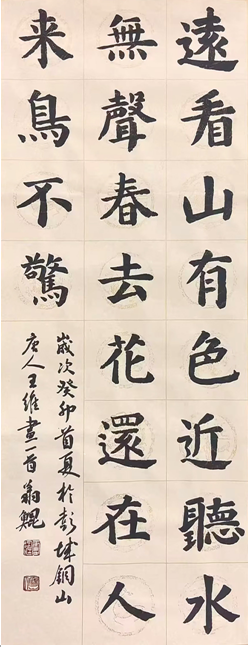 遠看山有色近聽水
無聲春去花還在人
来鳥不驚
歲次癸卯首夏於彭城銅山
唐人王維畫一首